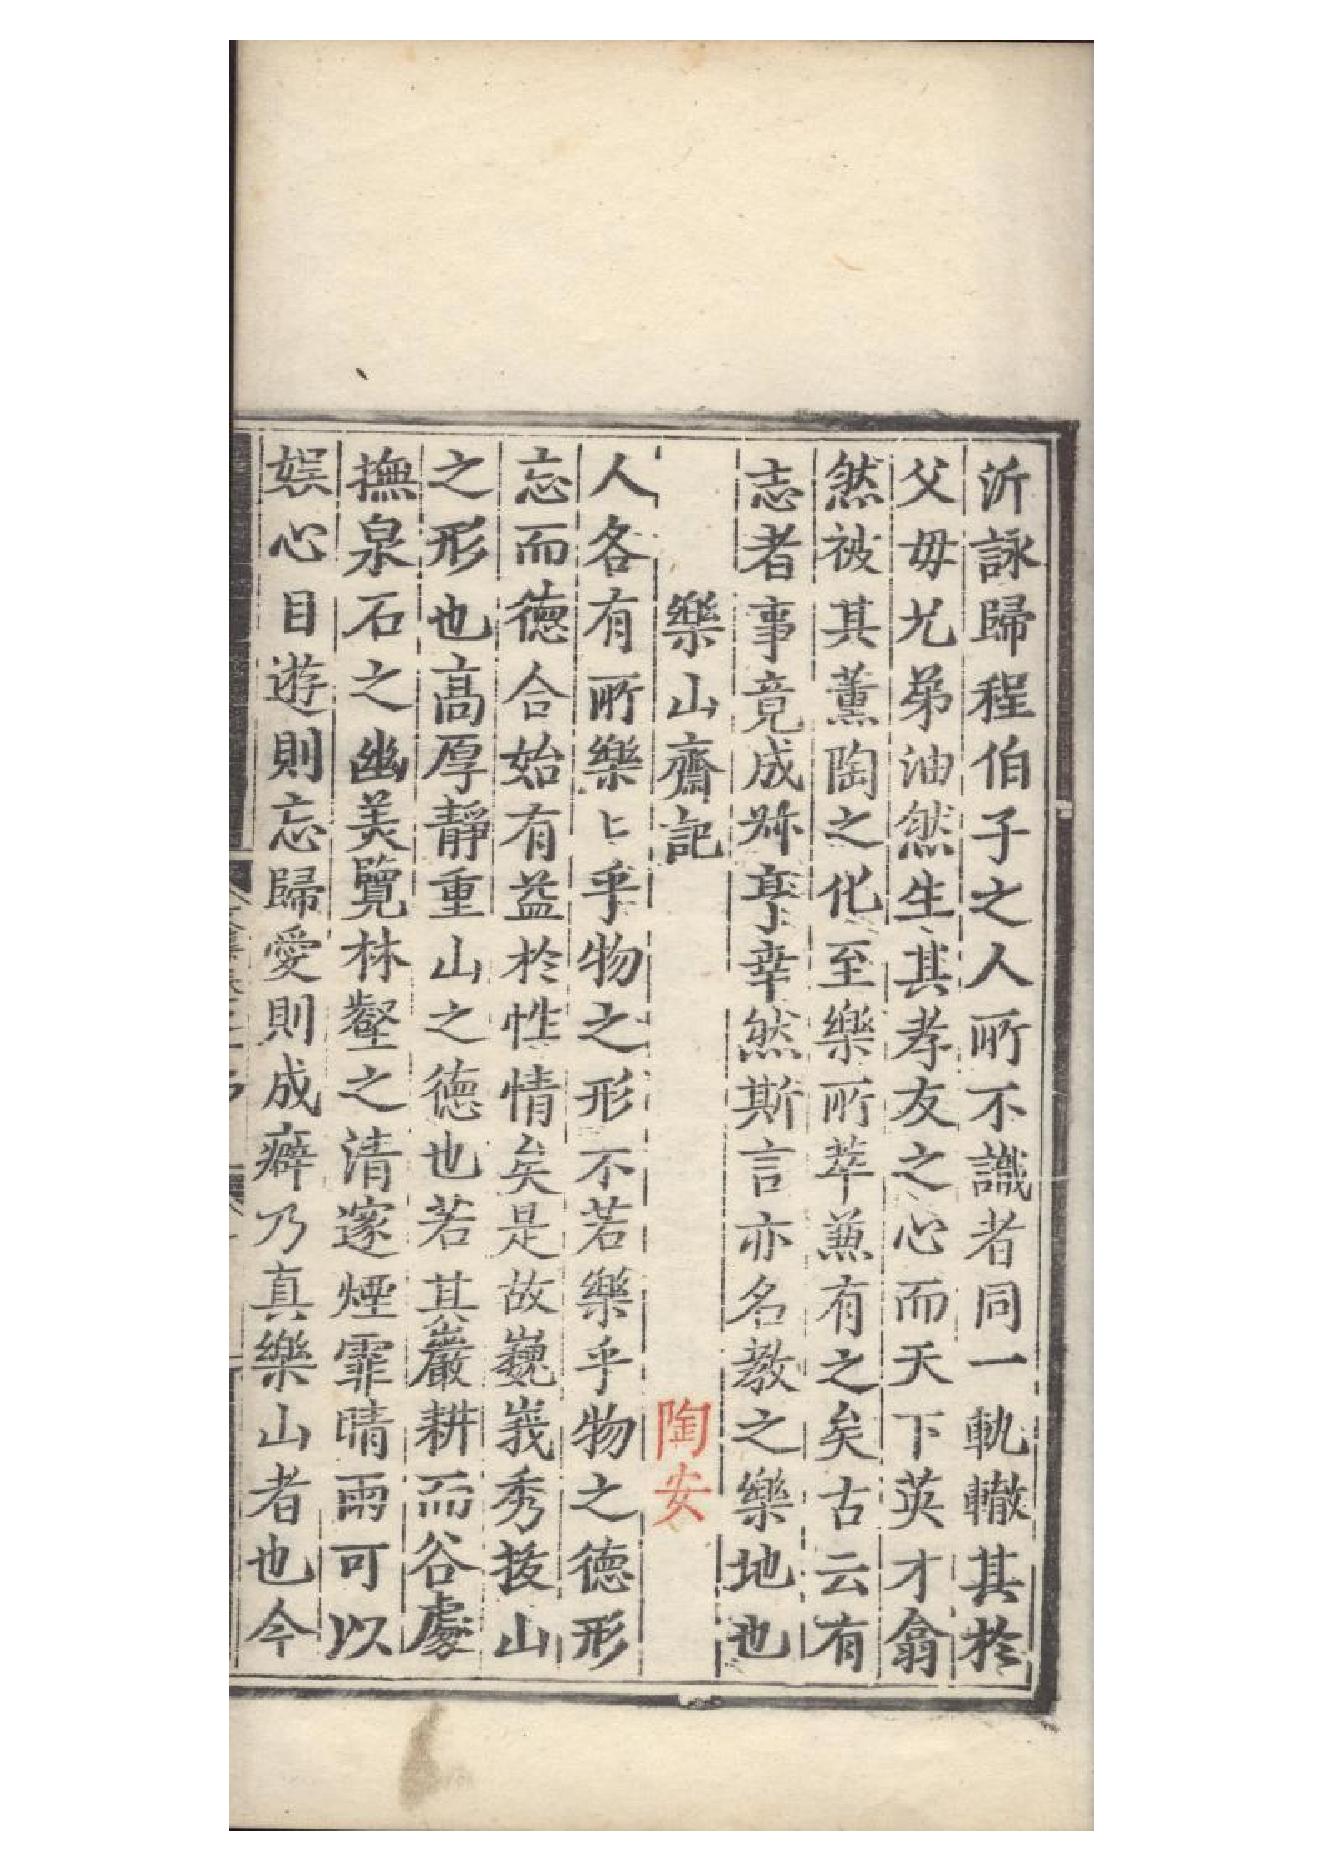 沂詠歸程伯子之人所不識者同一軌轍其於
父母兄弟油然生其孝友之心而天下英才翕
然被其薰陶之化至樂所萃兼有之矣古云有
志者事竟成斯亭幸然斯言亦名教之樂地也
樂山齋記 陶安
人各有所樂〻乎物之形不若樂乎物之德形
忘而德合始有益於性情矣是故巍峩秀拔山
之形也高厚靜重山之德也若其巖耕而谷處
撫泉石之幽美覽林壑之清邃煙霏晴雨可以
娛心目遊則忘歸愛則成癖乃真樂山者也今